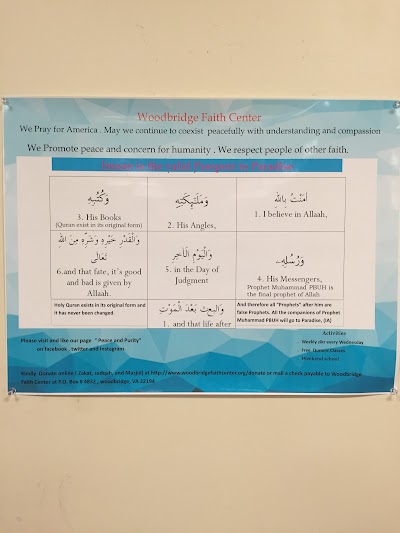 Woodbridge Faith Center
We Pray for America . May we continue to coexist peacefully with understanding and compassion
We Promote peace and concern for humanity . We respect people of other faith.
is the valid Passport to Paradise
اٰمَنْتُ بِاللهِ
1. I believe in Allaah,
وَمَلٰئِكَتِهٖ
2. His Angles,
وَكُتُبِهٖ
3. His Books
(Quran exist in its original form)
وَرُسُلِهٖ
4. His Messengers,
Prophet Muhammad PBUH is
the final prophet of Allah
وَالْيَوْمِ الْاٰخِرِ
5. in the Day of
Judgment
وَالْقَدْرِ خَيْرِهٖ وَشَرِّهٖ مِنَ اللهِ
تَعَالٰى
6.and that fate, it's good
and bad is given by
Allaah.
وَالْبَعْثِ بَعْدَ الْمَوْتِ
1. and that life after
Holy Quran exist in its original form and
it has never been changed.
And therefore all "Prophets" after him are
false Prophets. All the companions of Prophet
Muhammad PBUH will go to Paradise, (IA)
Please visit and like our page " Peace and Purity"
on facebook , twitter and Instagram
Activities
- Weekly iker every Wednesday
- Free Quranic Classes
- Homework school
Kindly: Donate online ( Zakat, sadqah, and Masjid) at http://www.woodbridgefaithcenter.org/donate or mail a check payable to Woodbridge
Faith Center at P.O. Box # 4652 , woodbridge, VA 22194